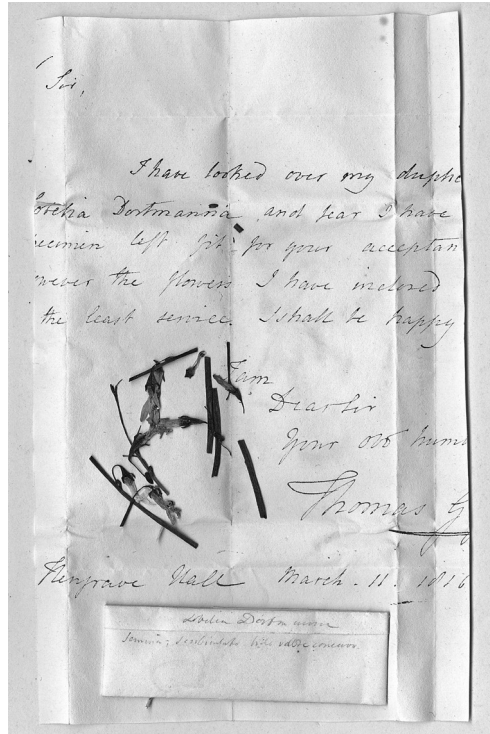 Sir,
I have looked over my dupli
obelia Dortmanna and fear I have
pecimen left fit for your acceptan
wever the flowers I have inclosed
the least service. I shall be happy
I am
Dear Sir
Your Ob humb
Thomas G
Hengrave Hall March. 11. 1816
Lobelia Dortmanna
Semina;